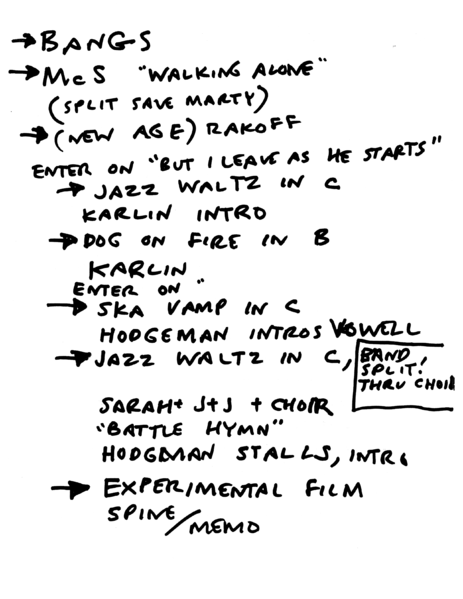 → BANGS
→ McS "WALKING ALONE"
(SPLIT SAVE MARTY)
→ (NEW AGE) RAKOFF
ENTER ON "BUT I LEAVE AS HE STARTS"
→ JAZZ WALTZ IN C
KARLIN INTRO
→ DOG ON FIRE IN B
KARLIN
ENTER ON "
→ SKA VAMP IN C
HODGEMAN INTROS VOWELL
→ JAZZ WALTZ IN C,
BAND
SPLIT!
THRU CHOIR
SARAH + J+J + CHOIR
"BATTLE HYMN"
HODGEMAN STALLS, INTRO
→ EXPERIMENTAL FILM
SPINE/MEMO